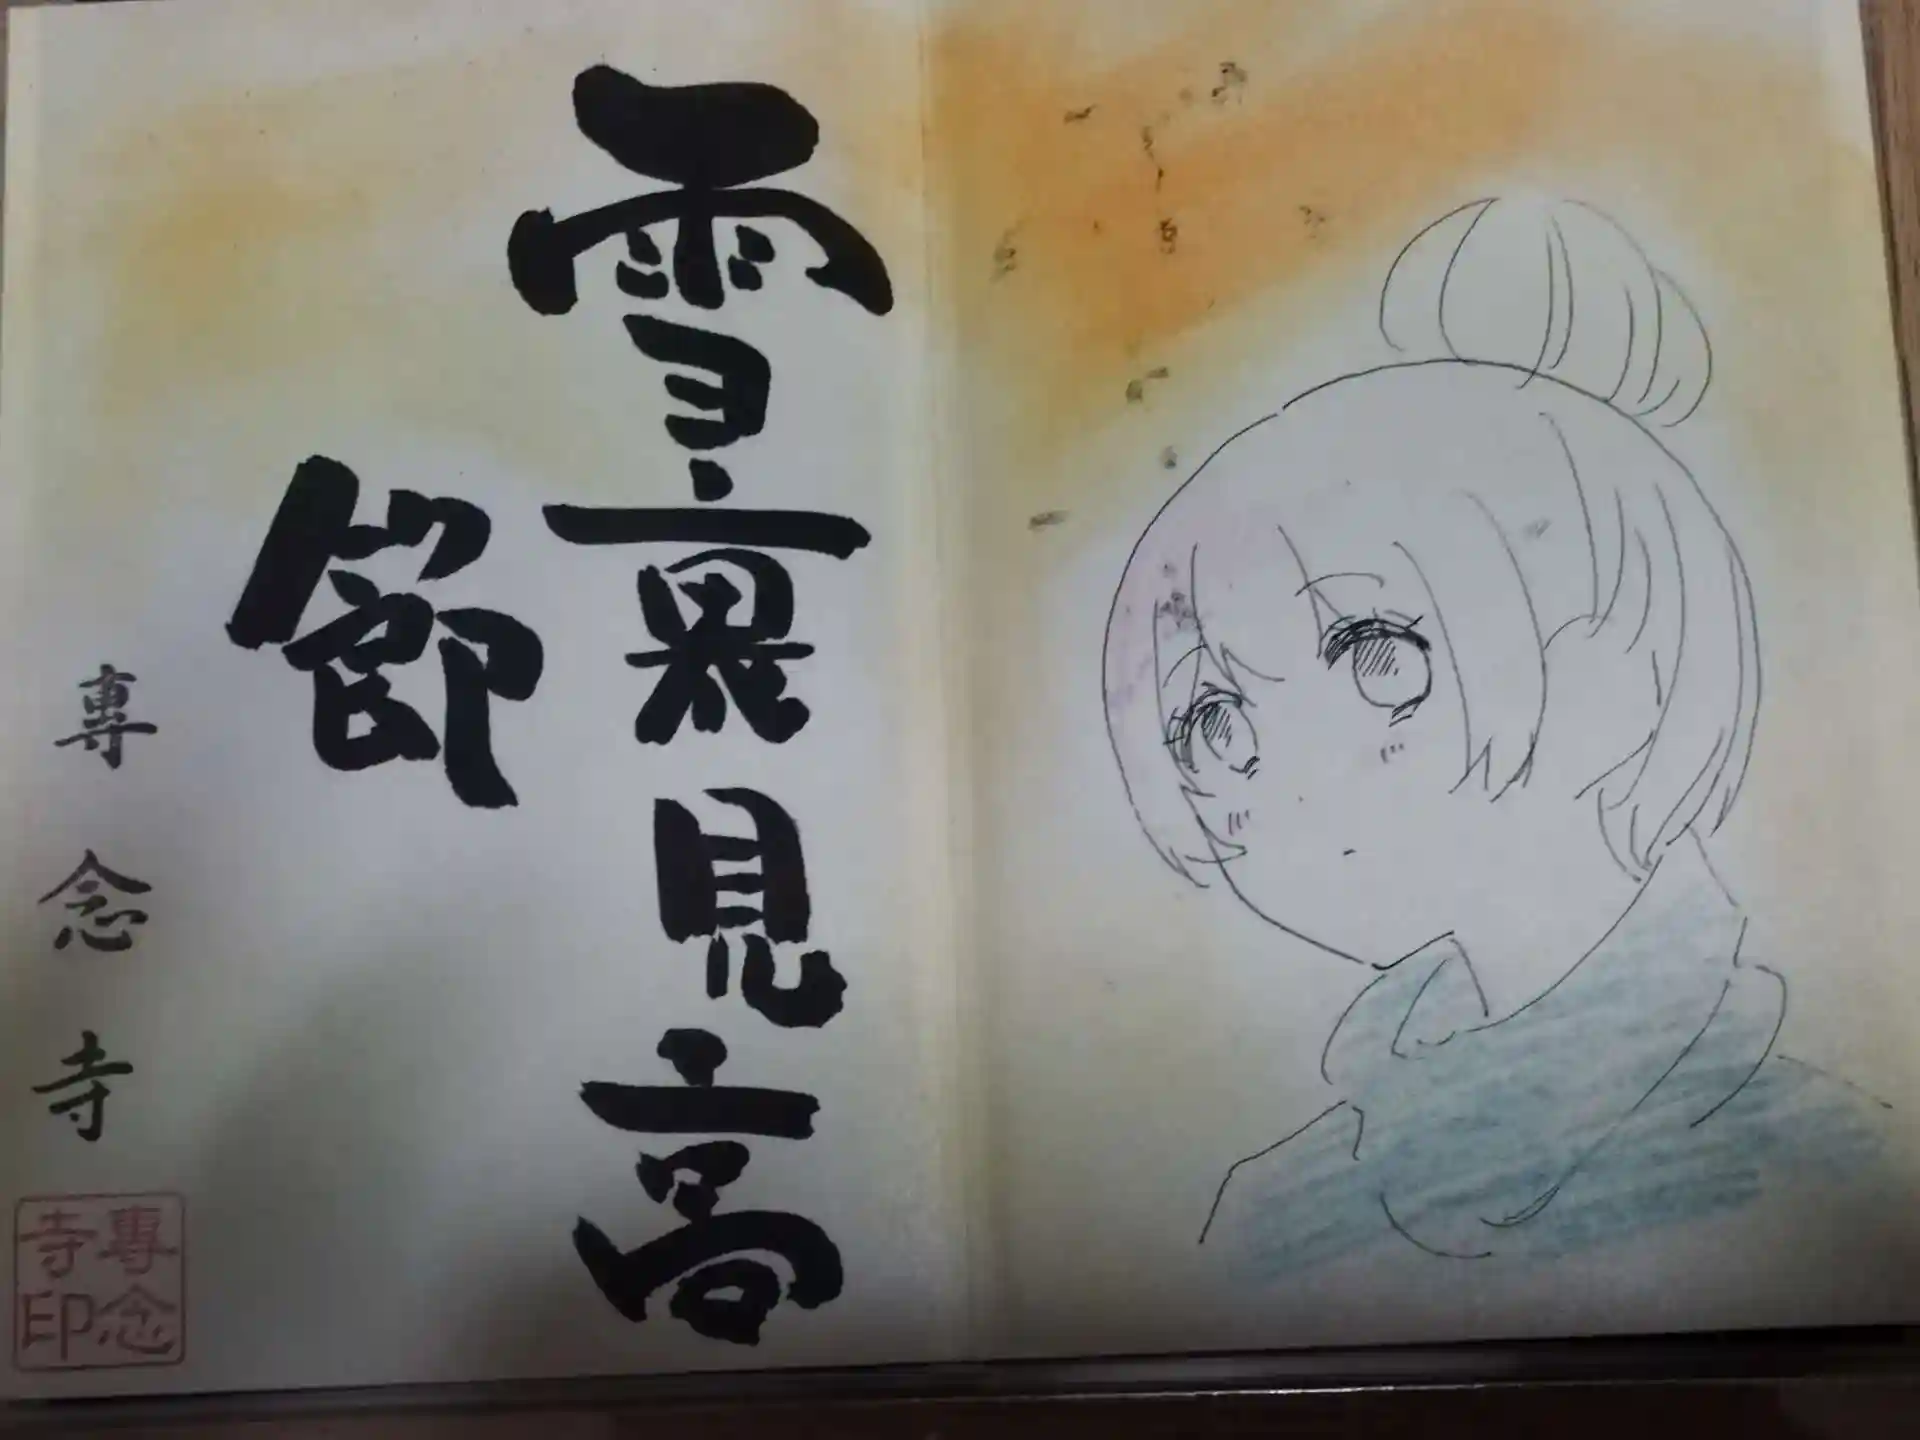 雪裏見高
節
專念寺
專念
寺印